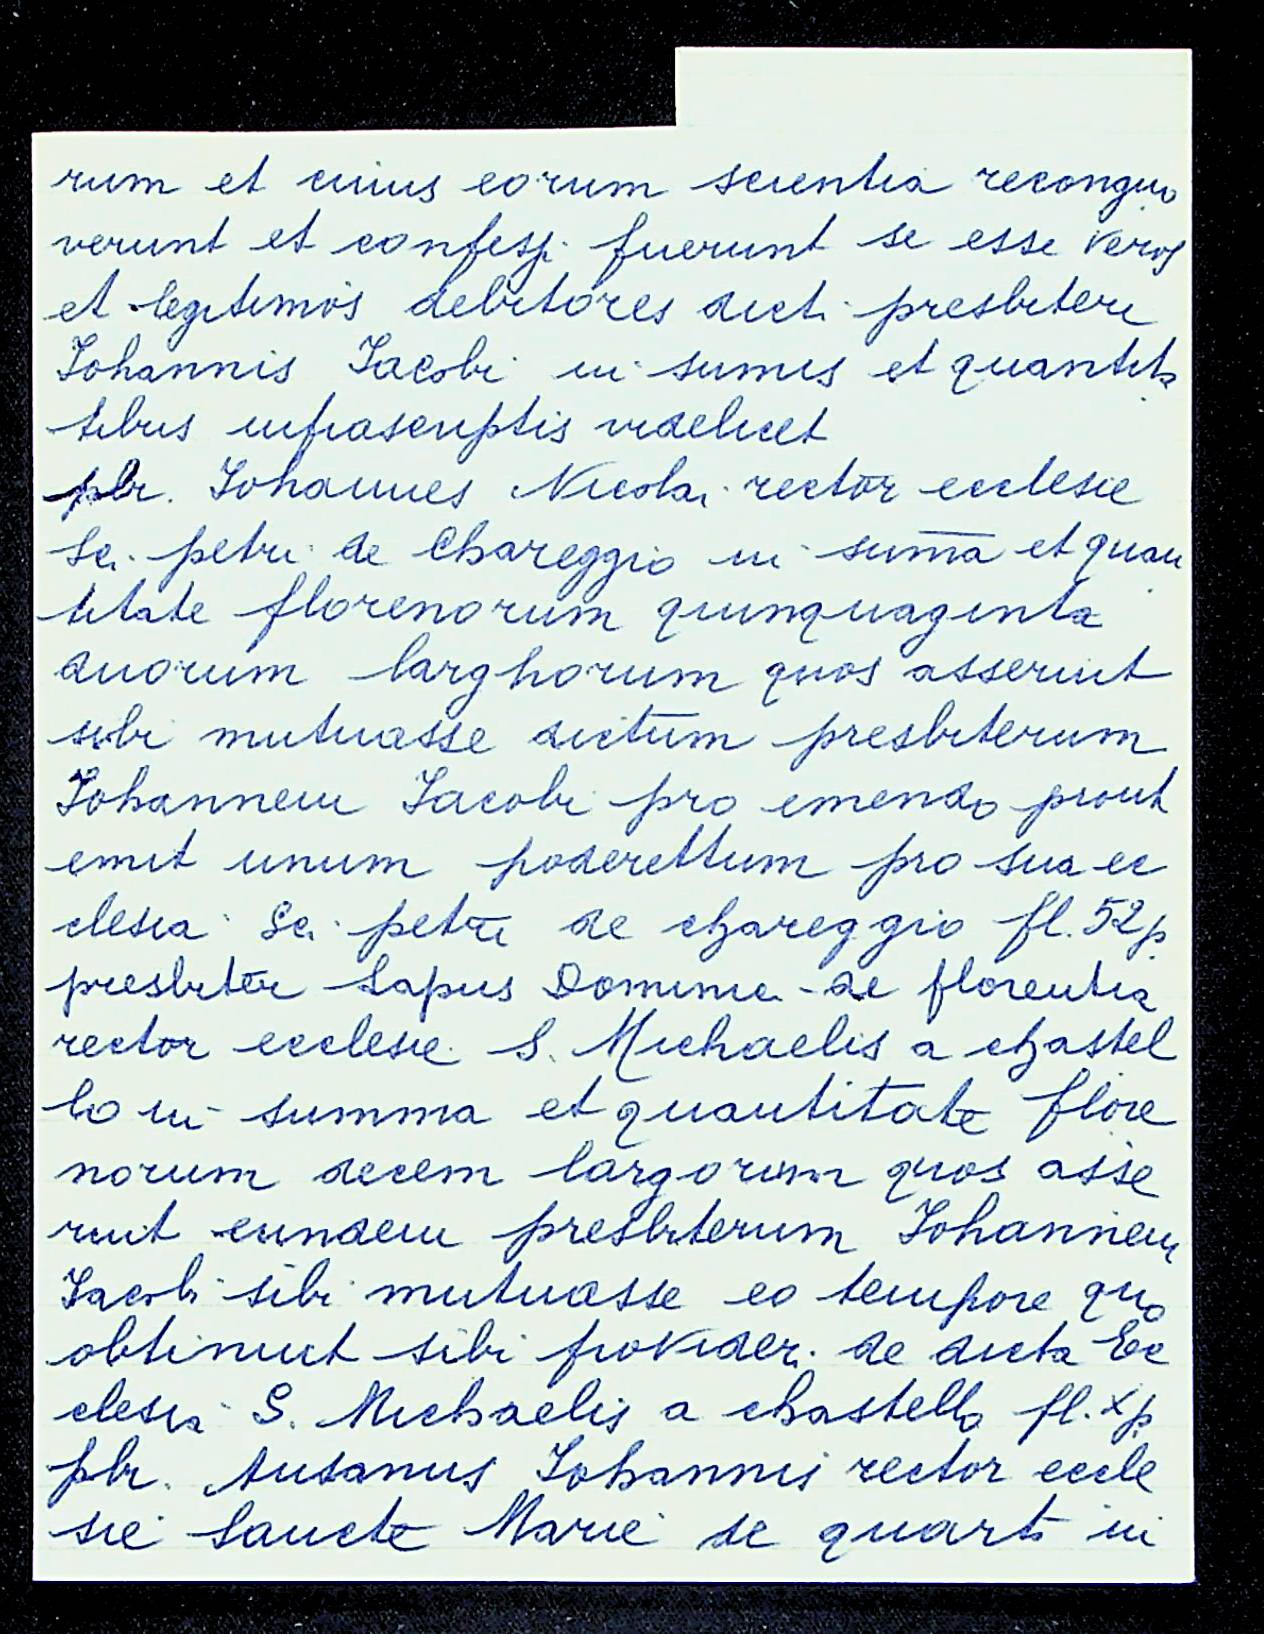 rum et cuius eorum scientia recongno
verunt et confessi fuerunt se esse veros
et legitimos debitores dicti presbiteri
Iohannis Iacobi in sumis et quantita
tibus infrascriptis videlicet
pbr. Iohannes Nicolai rector ecclesie
Sci. petri de Chareggio in suma et quan
titate florenorum quinquaginta
duorum larghorum quos asseruit
sibi mutuasse dictum presbiterum
Iohannem Iacobi pro emendo prout
emit unum poderettum pro sua ec
clesia Sci. petri de chareggio fl. 52 p
presbiter Lapus Dominici de florentia
rector ecclesie S. Michaelis a chastel
lo in summa et quantitate flore
norum decem largorum quos asse
ruit eundem presbiterum Iohannem
Iacobi sibi mutuasse eo tempore quo
obtinuit sibi provideri de dicta Ec
clesia S. Michaelis a chastello fl. x p
pbr. Ansanus Iohannis rector eccle
sie Sancte Marie de quarto in